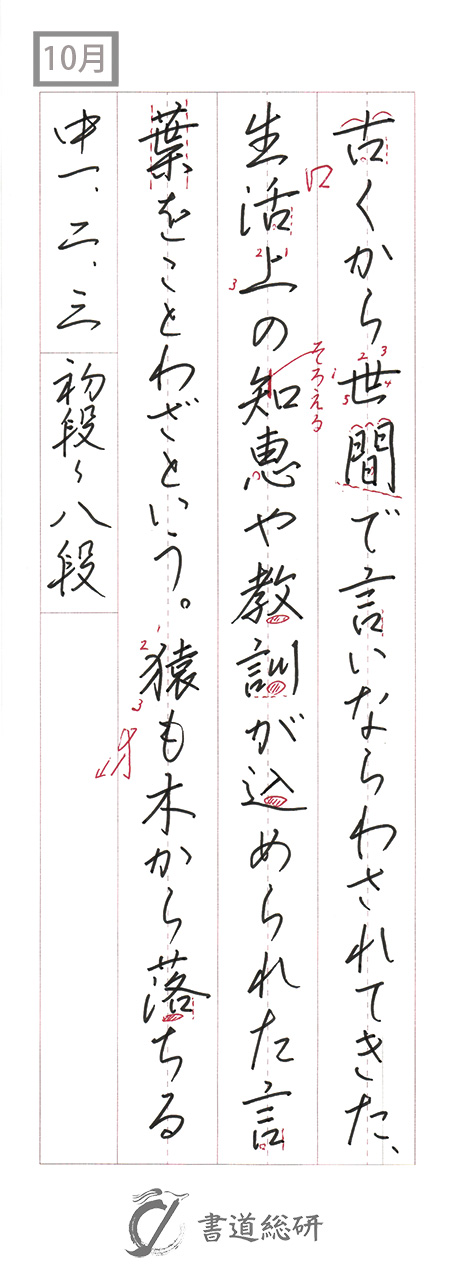 10月
古くから世間で言いならわされてきた、
生活上の知恵や教訓が込められた言
葉をことわざという。猿も木から落ちる
中一、二、三
初段〜八段
そろえる
書道総研